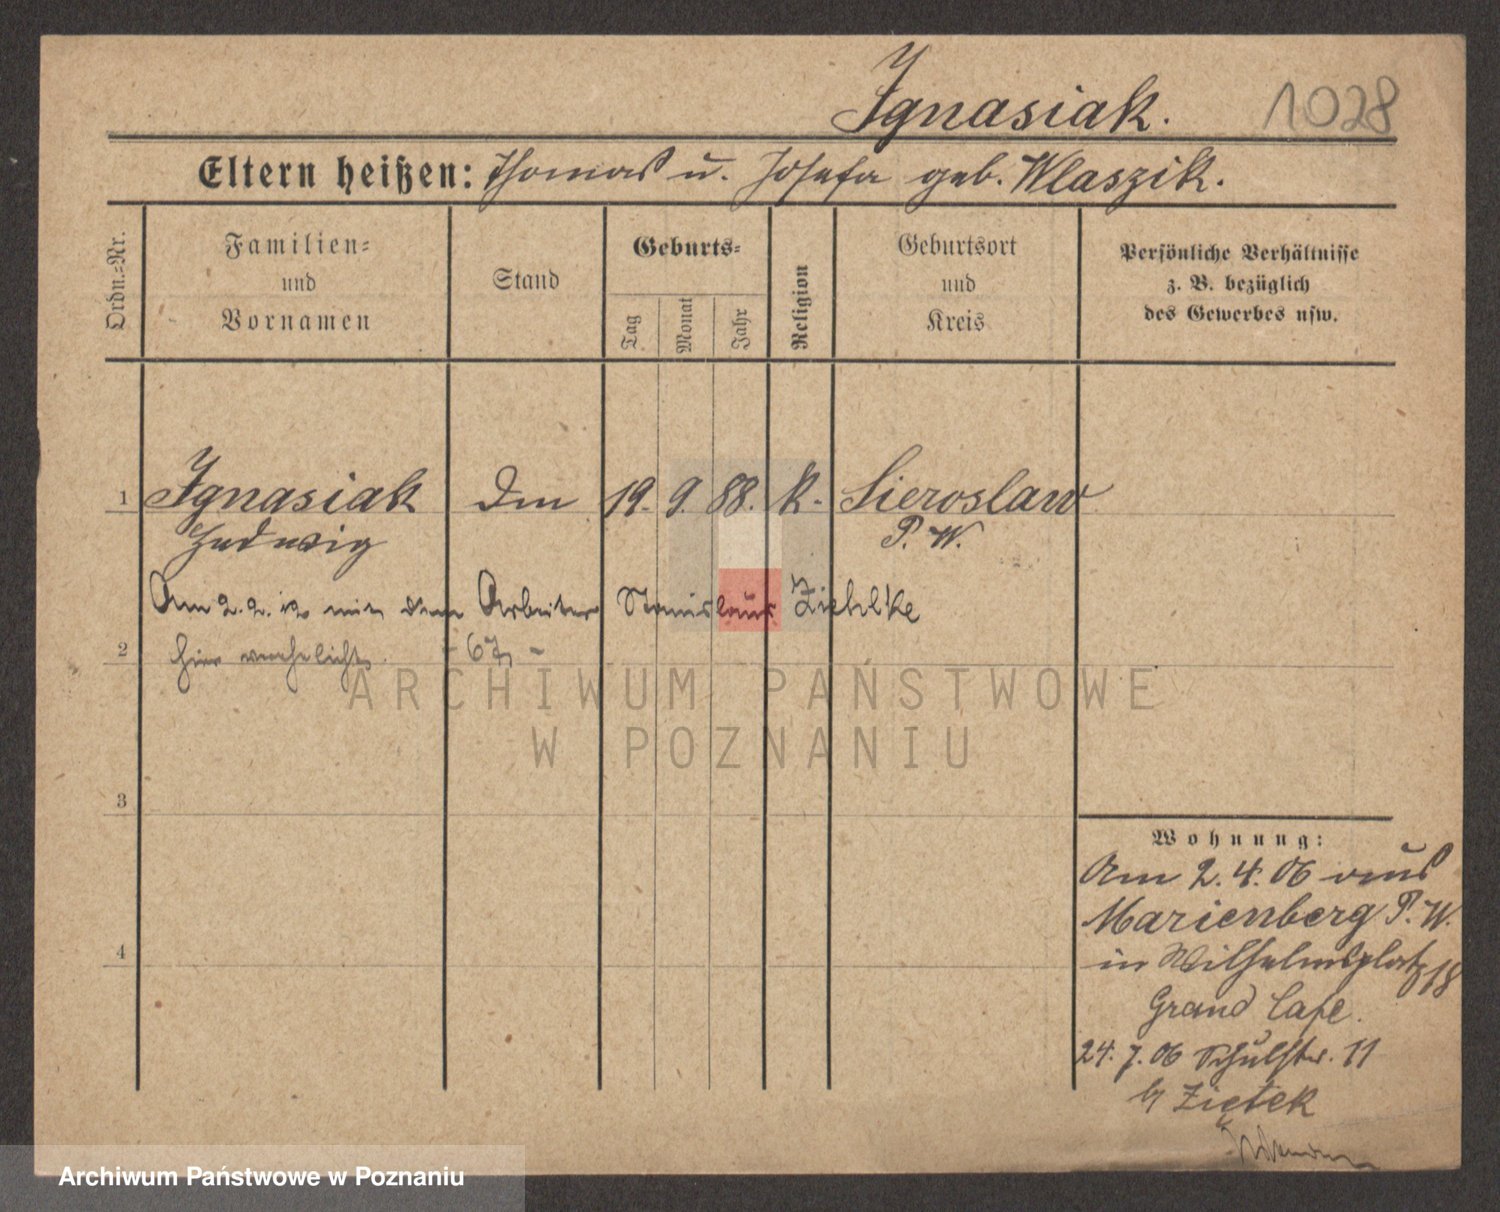 Ignasiak.
1028
Eltern heißen: Thomas u. Josefa geb. Wlaszik.
Ordn.-Nr.
Familien-
und
Vornamen
Stand
Geburts-
Tag
Monat
Jahr
Religion
Geburtsort
und
Kreis
Persönliche Verhältnisse
z. B. bezüglich
des Gewerbes usw.
1 Ignasiak 19. 9. 88. k. Sieroslaw
Hedwig P. W.
Am 2.2.12 mit dem Arbeiter Stanislaus Ziehlke
2 hier verehelicht. - 67 -
ARCHIWUM PAŃSTWOWE
W POZNANIU
3
Wohnung:
Am 2. 4. 06 aus
Marienberg P. W.
4
in Wilhelmsplatz 18
Grand Cafe.
24. 7. 06 Schulstr. 11
b/ Ziętek
Archiwum Państwowe w Poznaniu